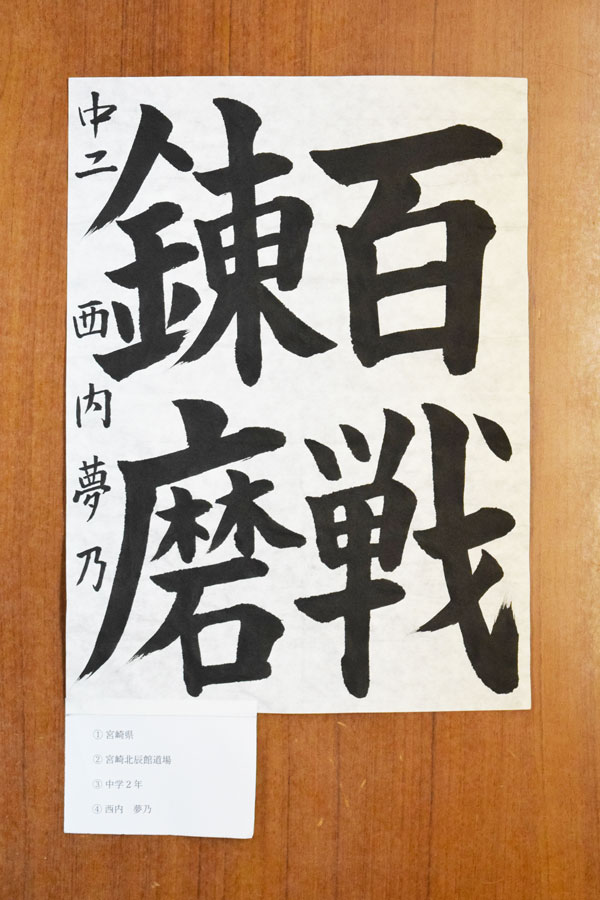 百戦
錬磨
中二 西内夢乃
① 宮崎県
② 宮崎北辰館道場
③ 中学２年
④ 西内　夢乃